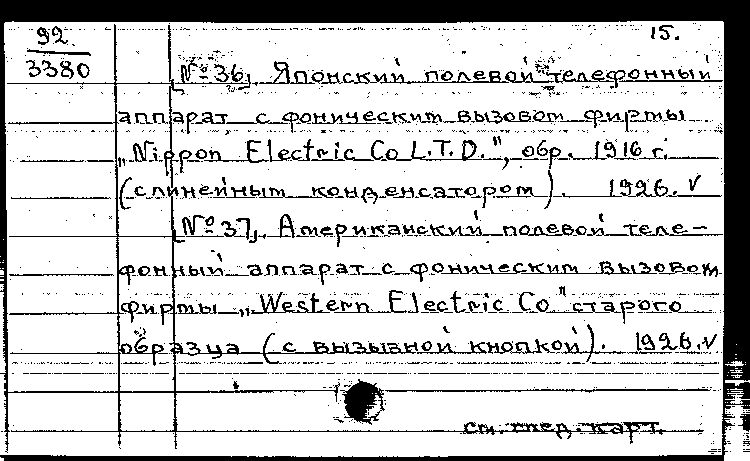 92
3380
15.
[№36]. Японский полевой телефонный
аппарат с фоническим вызовом фирмы
„Nippon Electric Co L.T.D.", обр. 1916 г.
(слинейным конденсатором). 1926. V
[№37]. Американский полевой теле-
фонный аппарат с фоническим вызовом
фирмы „Western Electric Co" старого
образца (с вызывной кнопкой). 1926. V
см. след. карт.